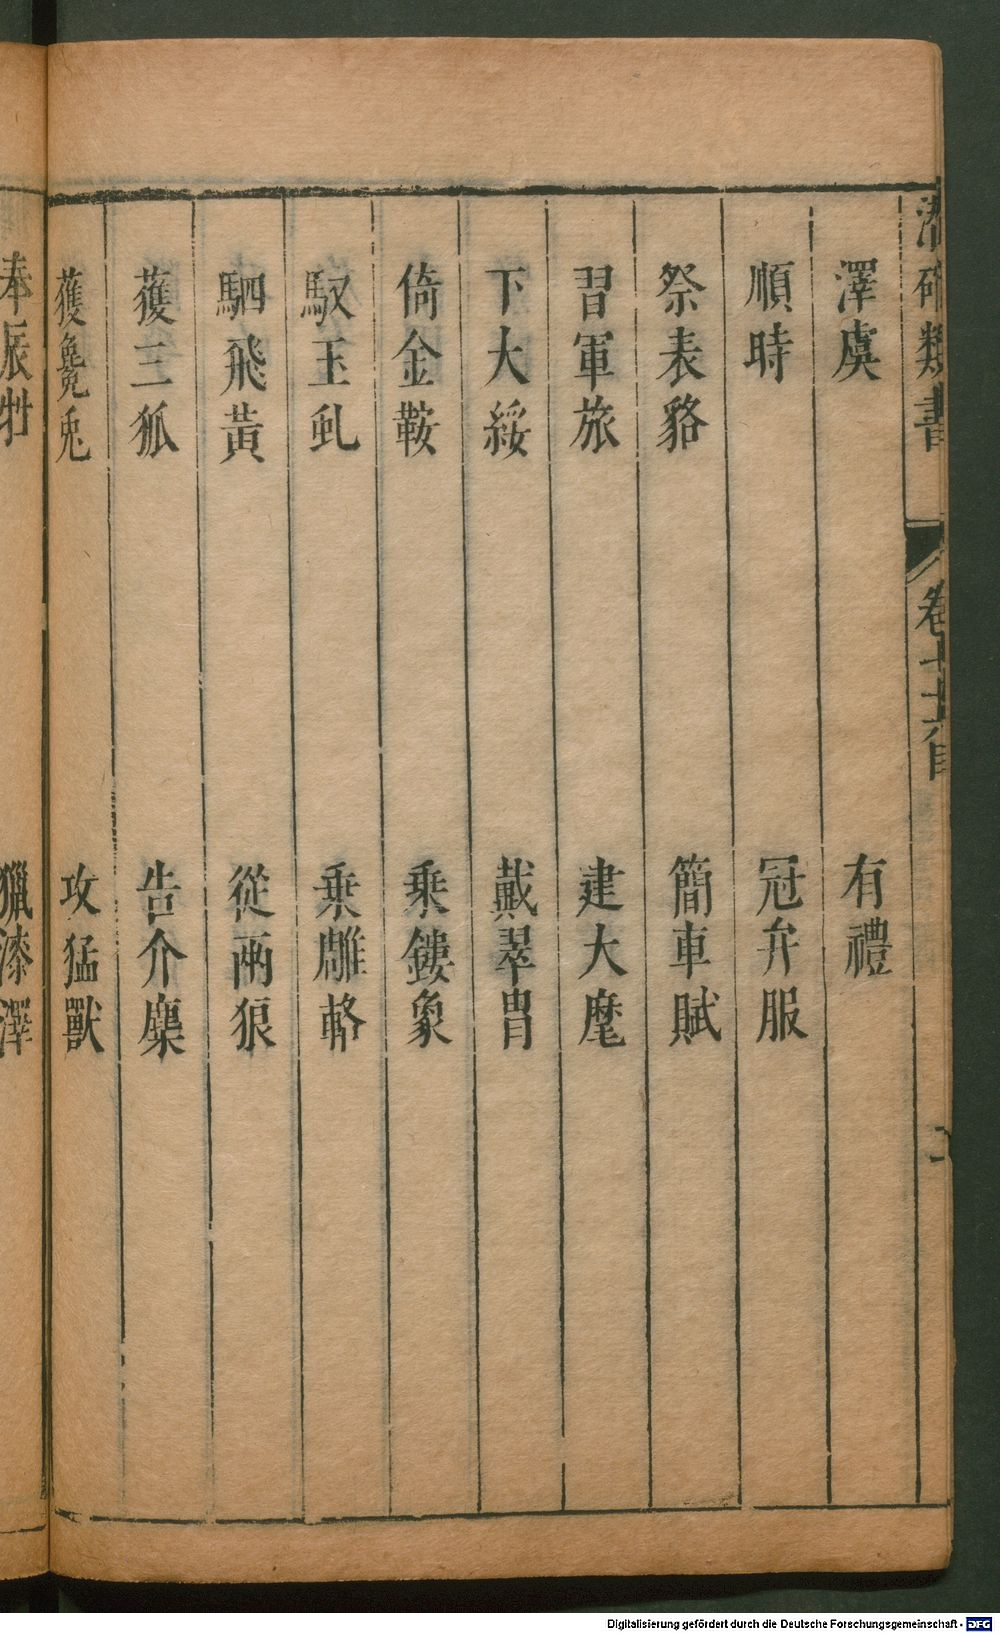 類書 卷
澤虞 有禮
順時 冠弁服
祭表貉 簡車賦
習軍旅 建大麾
下大綏 戴翠冑
倚金鞍 乘鏤象
馭玉虬 乗雕輅
駟飛黃 從兩狼
獲三狐 告介麋
獲毚兎 攻猛獸
奉辰牡 獵漆澤
Digitalisierung gefördert durch die Deutsche Forschungsgemeinschaft - DFG